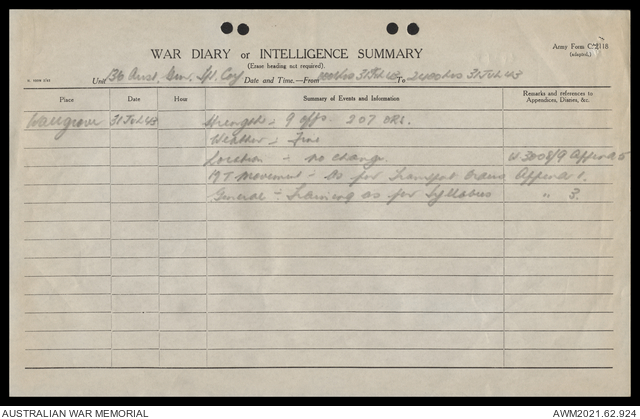 Army Form C. 2118
(adapted.)
WAR DIARY or INTELLIGENCE SUMMARY
(Erase heading not required).
Unit 36 Aust. Gen. Tpt. Coy Date and Time.—From 0001hrs 31 Jul 43 To 2400hrs 31 Jul 43
Place Date Hour Summary of Events and Information Remarks and references to Appendices, Diaries, &c.
Wallgrove 31 Jul 43 Strength - 9 offs. 207 ORs.
Weather - Fine
Location - no change.
MT Movement - As per Transport Orders Appendix 1.
General - Training as per Syllabus " 3.
AUSTRALIAN WAR MEMORIAL
AWM2021.62.924